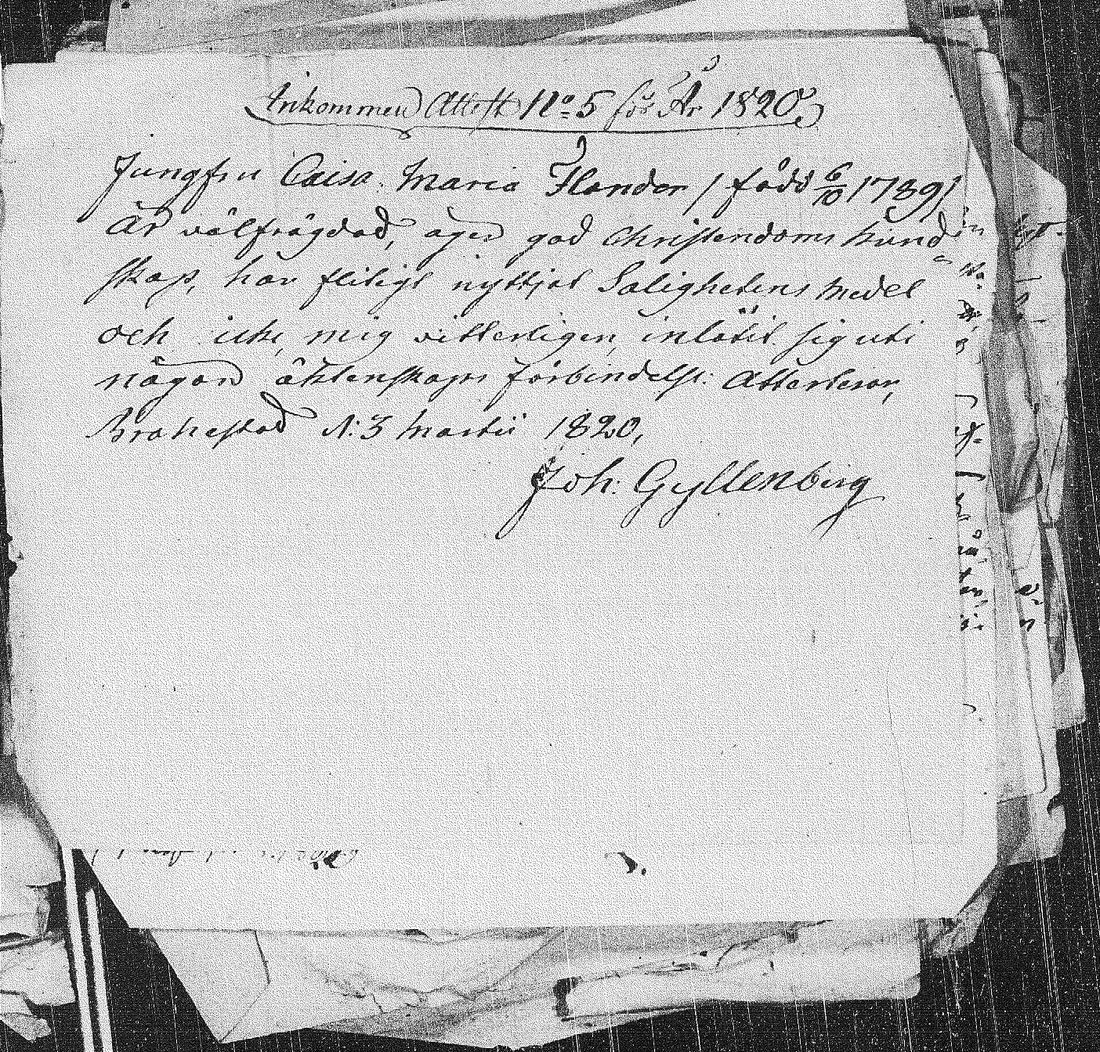 Ankommen Attest No 5 för År 1820
Jungfru Caisa Maria Flander / född 6/10 1789 /
Är välfrägdad, äger god Christendoms kund
skap, har fliteligt nyttjat Salighetens medel
och icke, mig vitterligen, inlåtit sig uti
någon äktenskaps förbindelse: Atterterar,
Brahestad d: 3 Martii 1820,
Joh: Gyllenberg